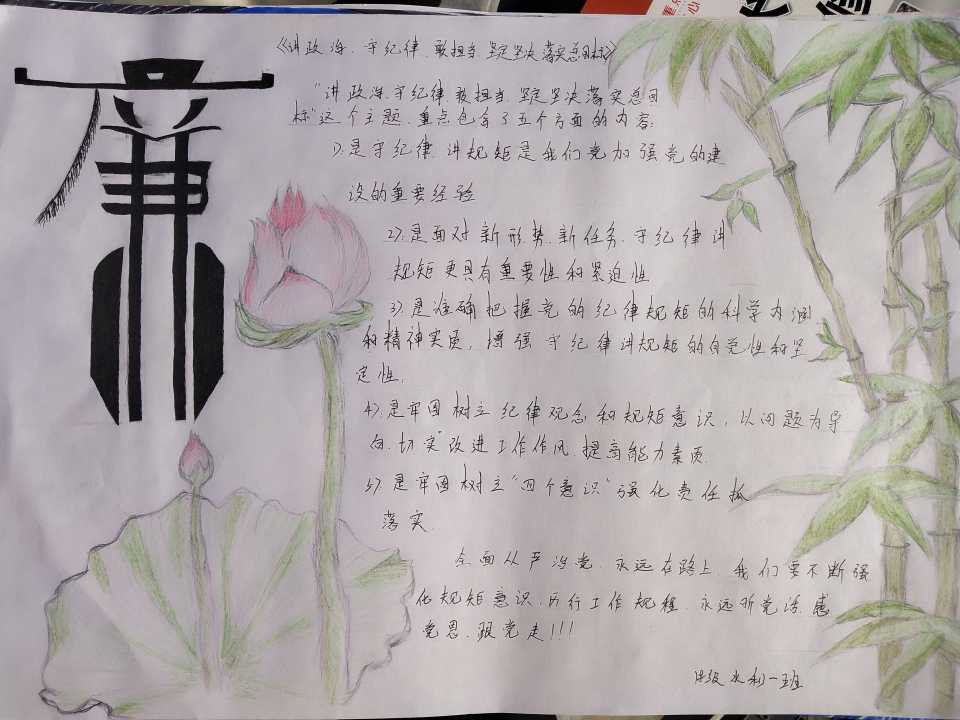 廉
《讲政治、守纪律、敢担当、坚定坚决落实总目标》
"讲政治、守纪律、敢担当、坚定坚决落实总目
标"这个主题,重点包含了五个方面的内容:
1).是守纪律、讲规矩是我们党加强党的建
设的重要经验
2).是面对新形势、新任务、守纪律讲
规矩更具有重要性和紧迫性
3).是准确把握党的纪律规矩的科学内涵
和精神实质,增强守纪律讲规矩的自觉性和坚
定性.
4).是牢固树立纪律观念和规矩意识,以问题为导
向.切实改进工作作风.提高能力素质.
5).是牢固树立"四个意识"强化责任抓
落实.
全面从严治党.永远在路上.我们要不断强
化规矩意识,历行工作规程.永远听党话.感
党恩.跟党走!!!
级水利一班